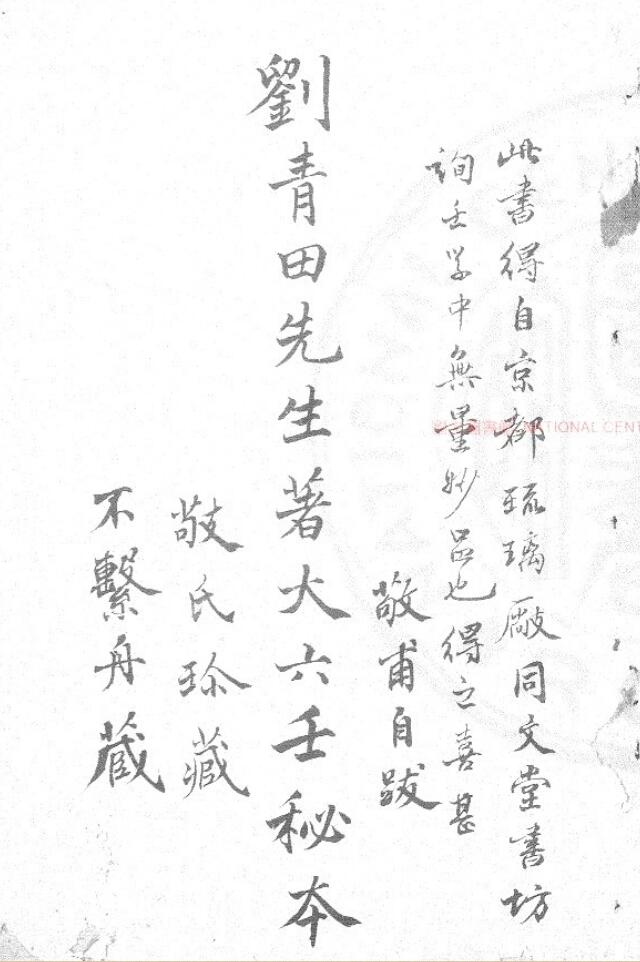 此書得自京都琉璃廠同文堂書坊
詢壬学中無量妙品也得之喜甚
敬甫自跋
劉青田先生著大六壬秘本
敬氏珍藏
不繫舟藏
NATIONAL CENT